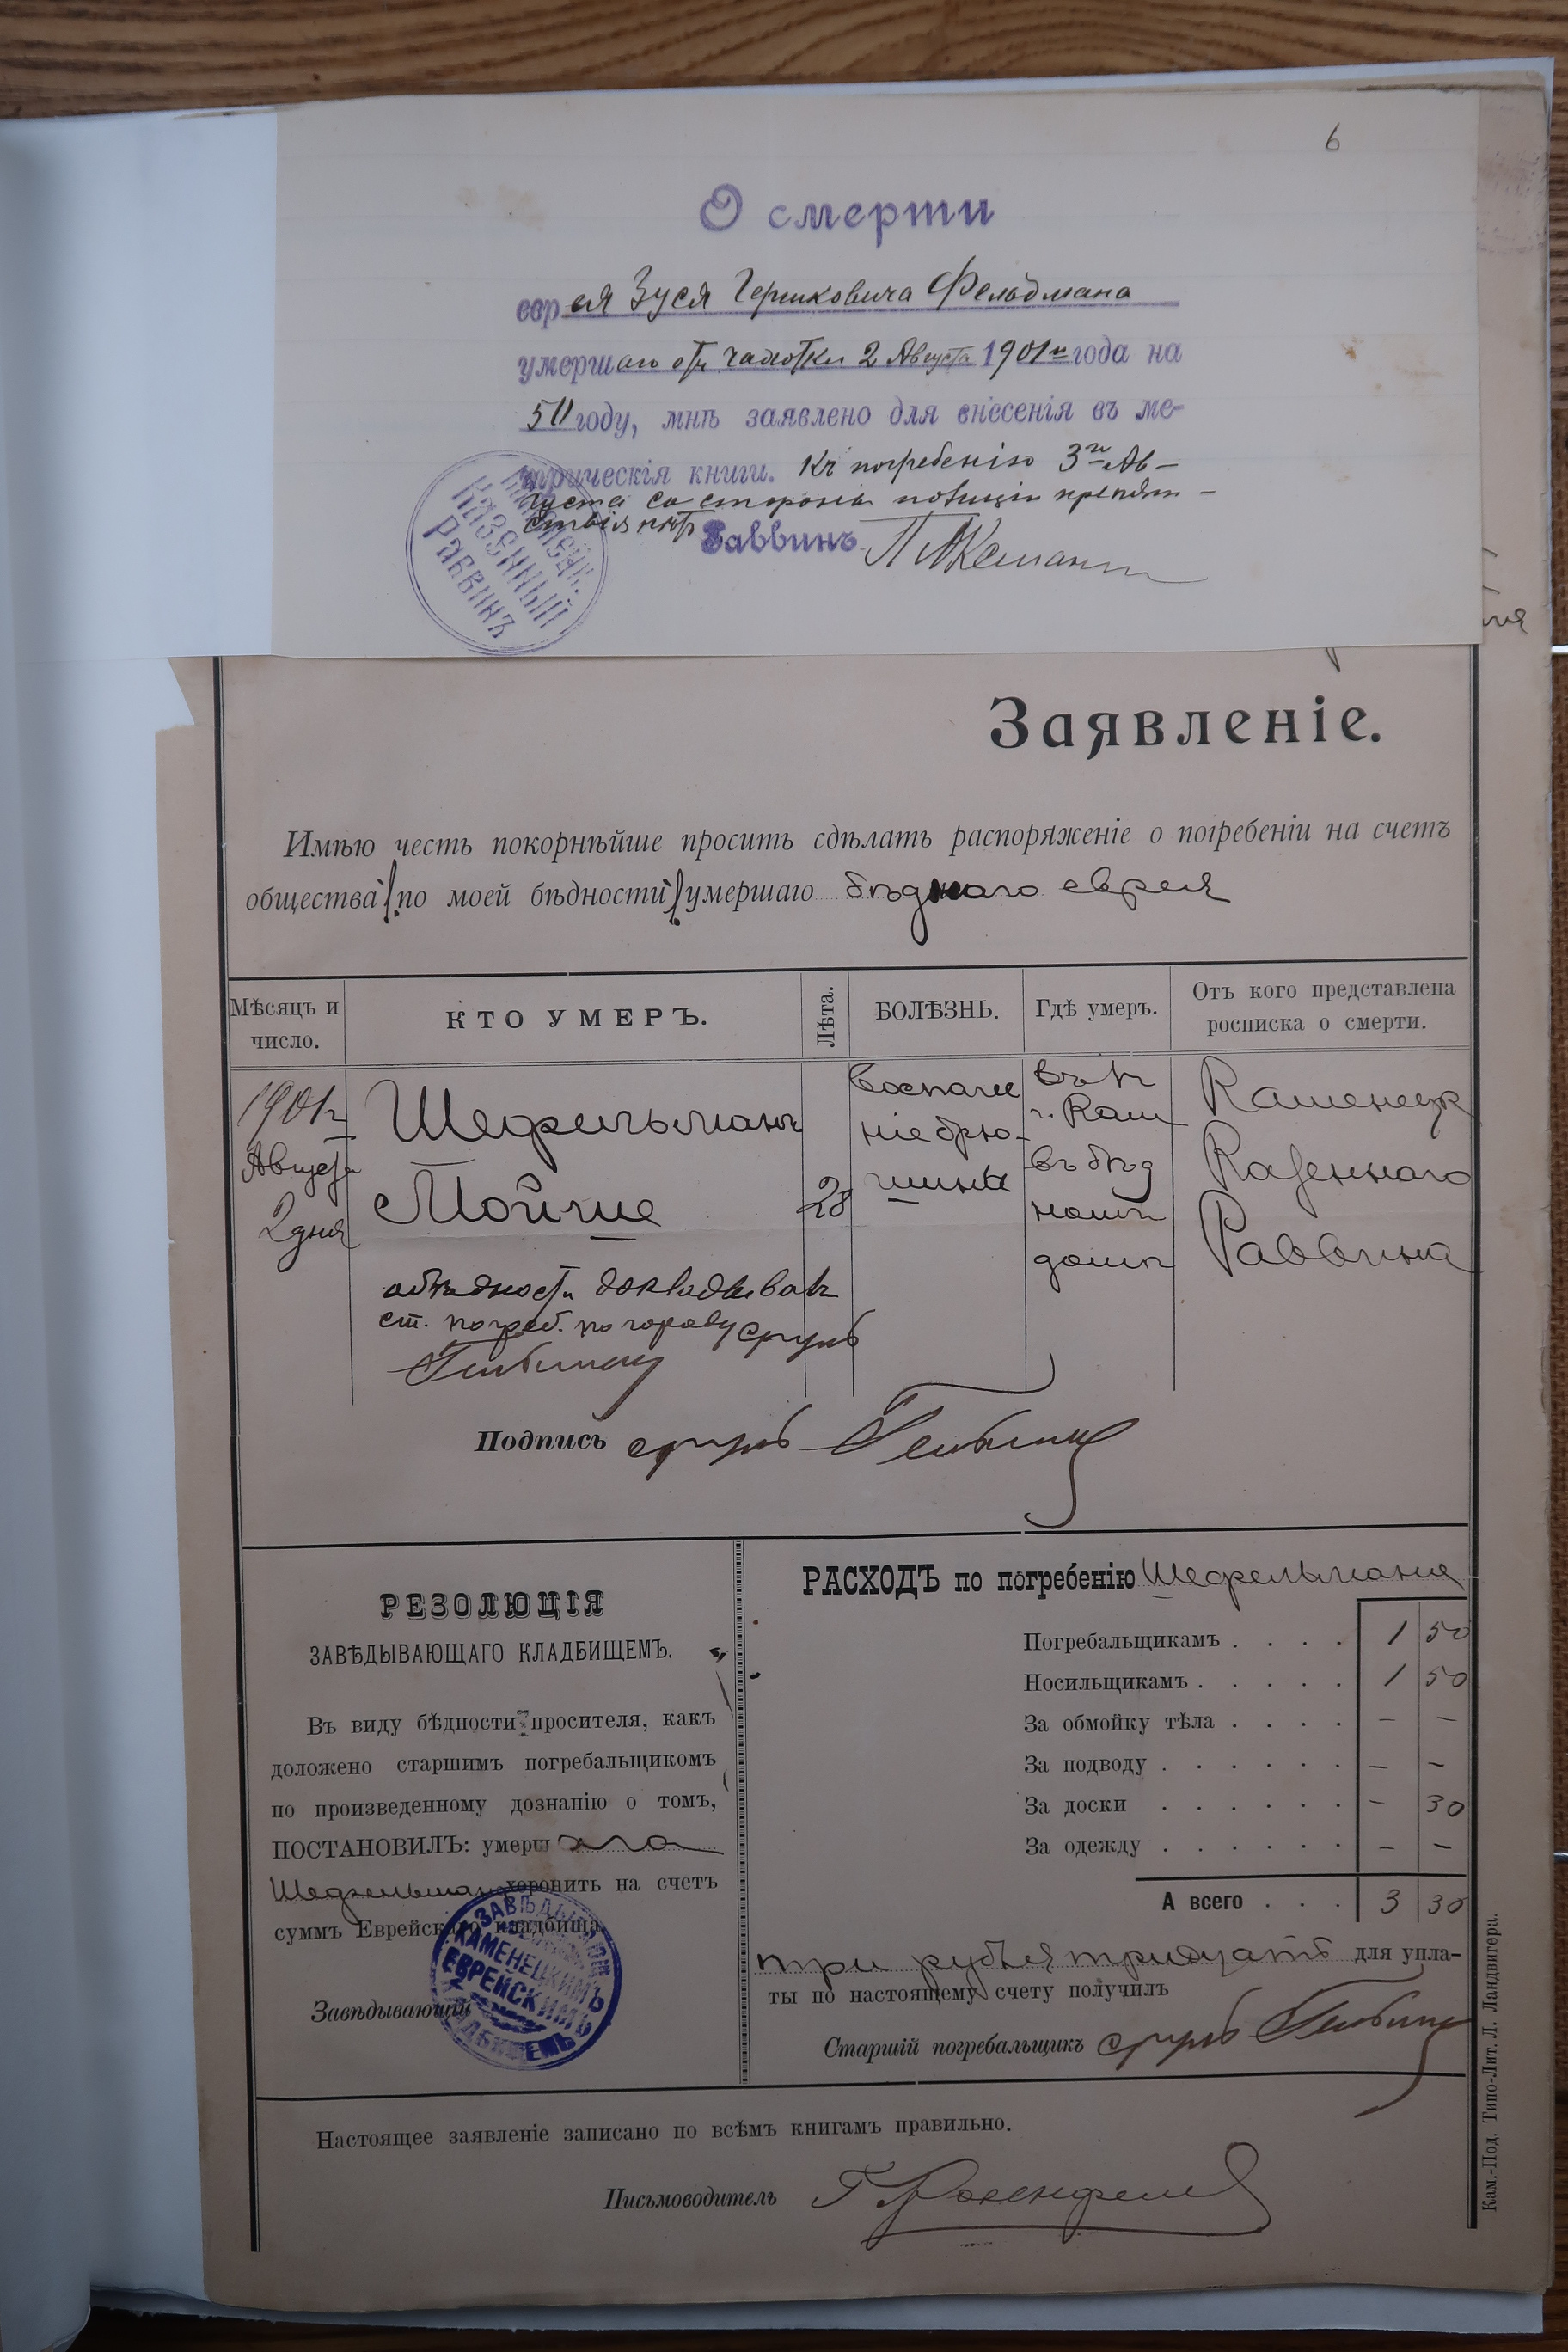 6
О смерти
еврея Зуся Гершковича Фельдмана
умершаго отъ чахотки 2 Августа 1901 г. года на
50 году, мнѣ заявлено для внесенія въ ме-
трическія книги. Къ погребенію 3го Ав-
густа со стороны полиціи препят-
ствія нѣтъ
Раввинъ
Каменецк.
Казенный
Раввинъ
Заявленіе.
Имѣю честь покорнѣйше просить сдѣлать распоряженіе о погребеніи на счетъ
общества (по моей бѣдности) умершаго бѣднаго еврея
Мѣсяцъ и число.
КТО УМЕРЪ.
Лѣта.
БОЛѢЗНЬ.
Гдѣ умеръ.
Отъ кого представлена росписка о смерти.
1901 г.
Августа
2 дня
Шефельманъ
Мойше
28
Воспале
ніе брю-
шины
въ
г. Кам
въ бѣд
номъ
домѣ
Каменецк
Казеннаго
Раввина
о бѣдности докладывалъ
ст. погреб. по городу Сруль
Подпись Сруль
РЕЗОЛЮЦІЯ
ЗАВѢДЫВАЮЩАГО КЛАДБИЩЕМЪ.
Въ виду бѣдности просителя, какъ
доложено старшимъ погребальщикомъ
по произведенному дознанію о томъ,
ПОСТАНОВИЛЪ: умерш аго
Шефельман хоронить на счетъ
суммъ Еврейскаго кладбища.
Завѣдывающій
ЗАВѢДЫВАЮЩІЙ
КАМЕНЕЦКИМЪ
ЕВРЕЙСКИМЪ
КЛАДБИЩЕМЪ
РАСХОДЪ по погребенію Шефельмана
Погребальщикамъ . . . . 1 50
Носильщикамъ . . . . . 1 50
За обмойку тѣла . . . . — —
За подводу . . . . . . — —
За доски . . . . . . — 30
За одежду . . . . . . — —
А всего . . . 3 30
три рубля тридцать для упла-
ты по настоящему счету получилъ
Старшій погребальщикъ Сруль
Настоящее заявленіе записано по всѣмъ книгамъ правильно.
Письмоводитель Г. Розенфельд
Кам.-Под. Типо-Лит. Л. Ландвигера.